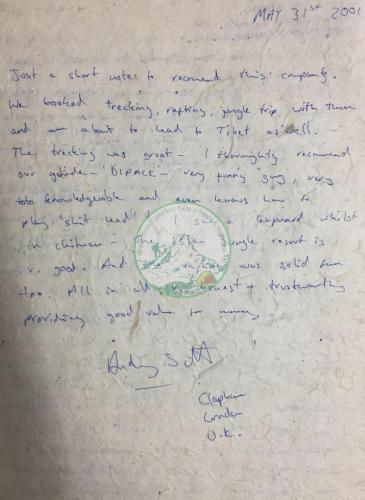 MAY 31st 2001
Just a short note to recomend this company.
We booked trecking, rafting, jungle trip with them
and are about to head to Tibet as well.
The trecking was great - I thoroughly recommend
our guide - DIPACK - very funny guy, very
knowledgeable and even knows how to
play 'shit head'! I saw a leopard whilst
in chitwan - The island jungle resort is
v. good. And the rafting was solid fun
too. All in all v. honest + trustworthy
providing good value for money.
Andy Scott
Clapham
London
U.K.